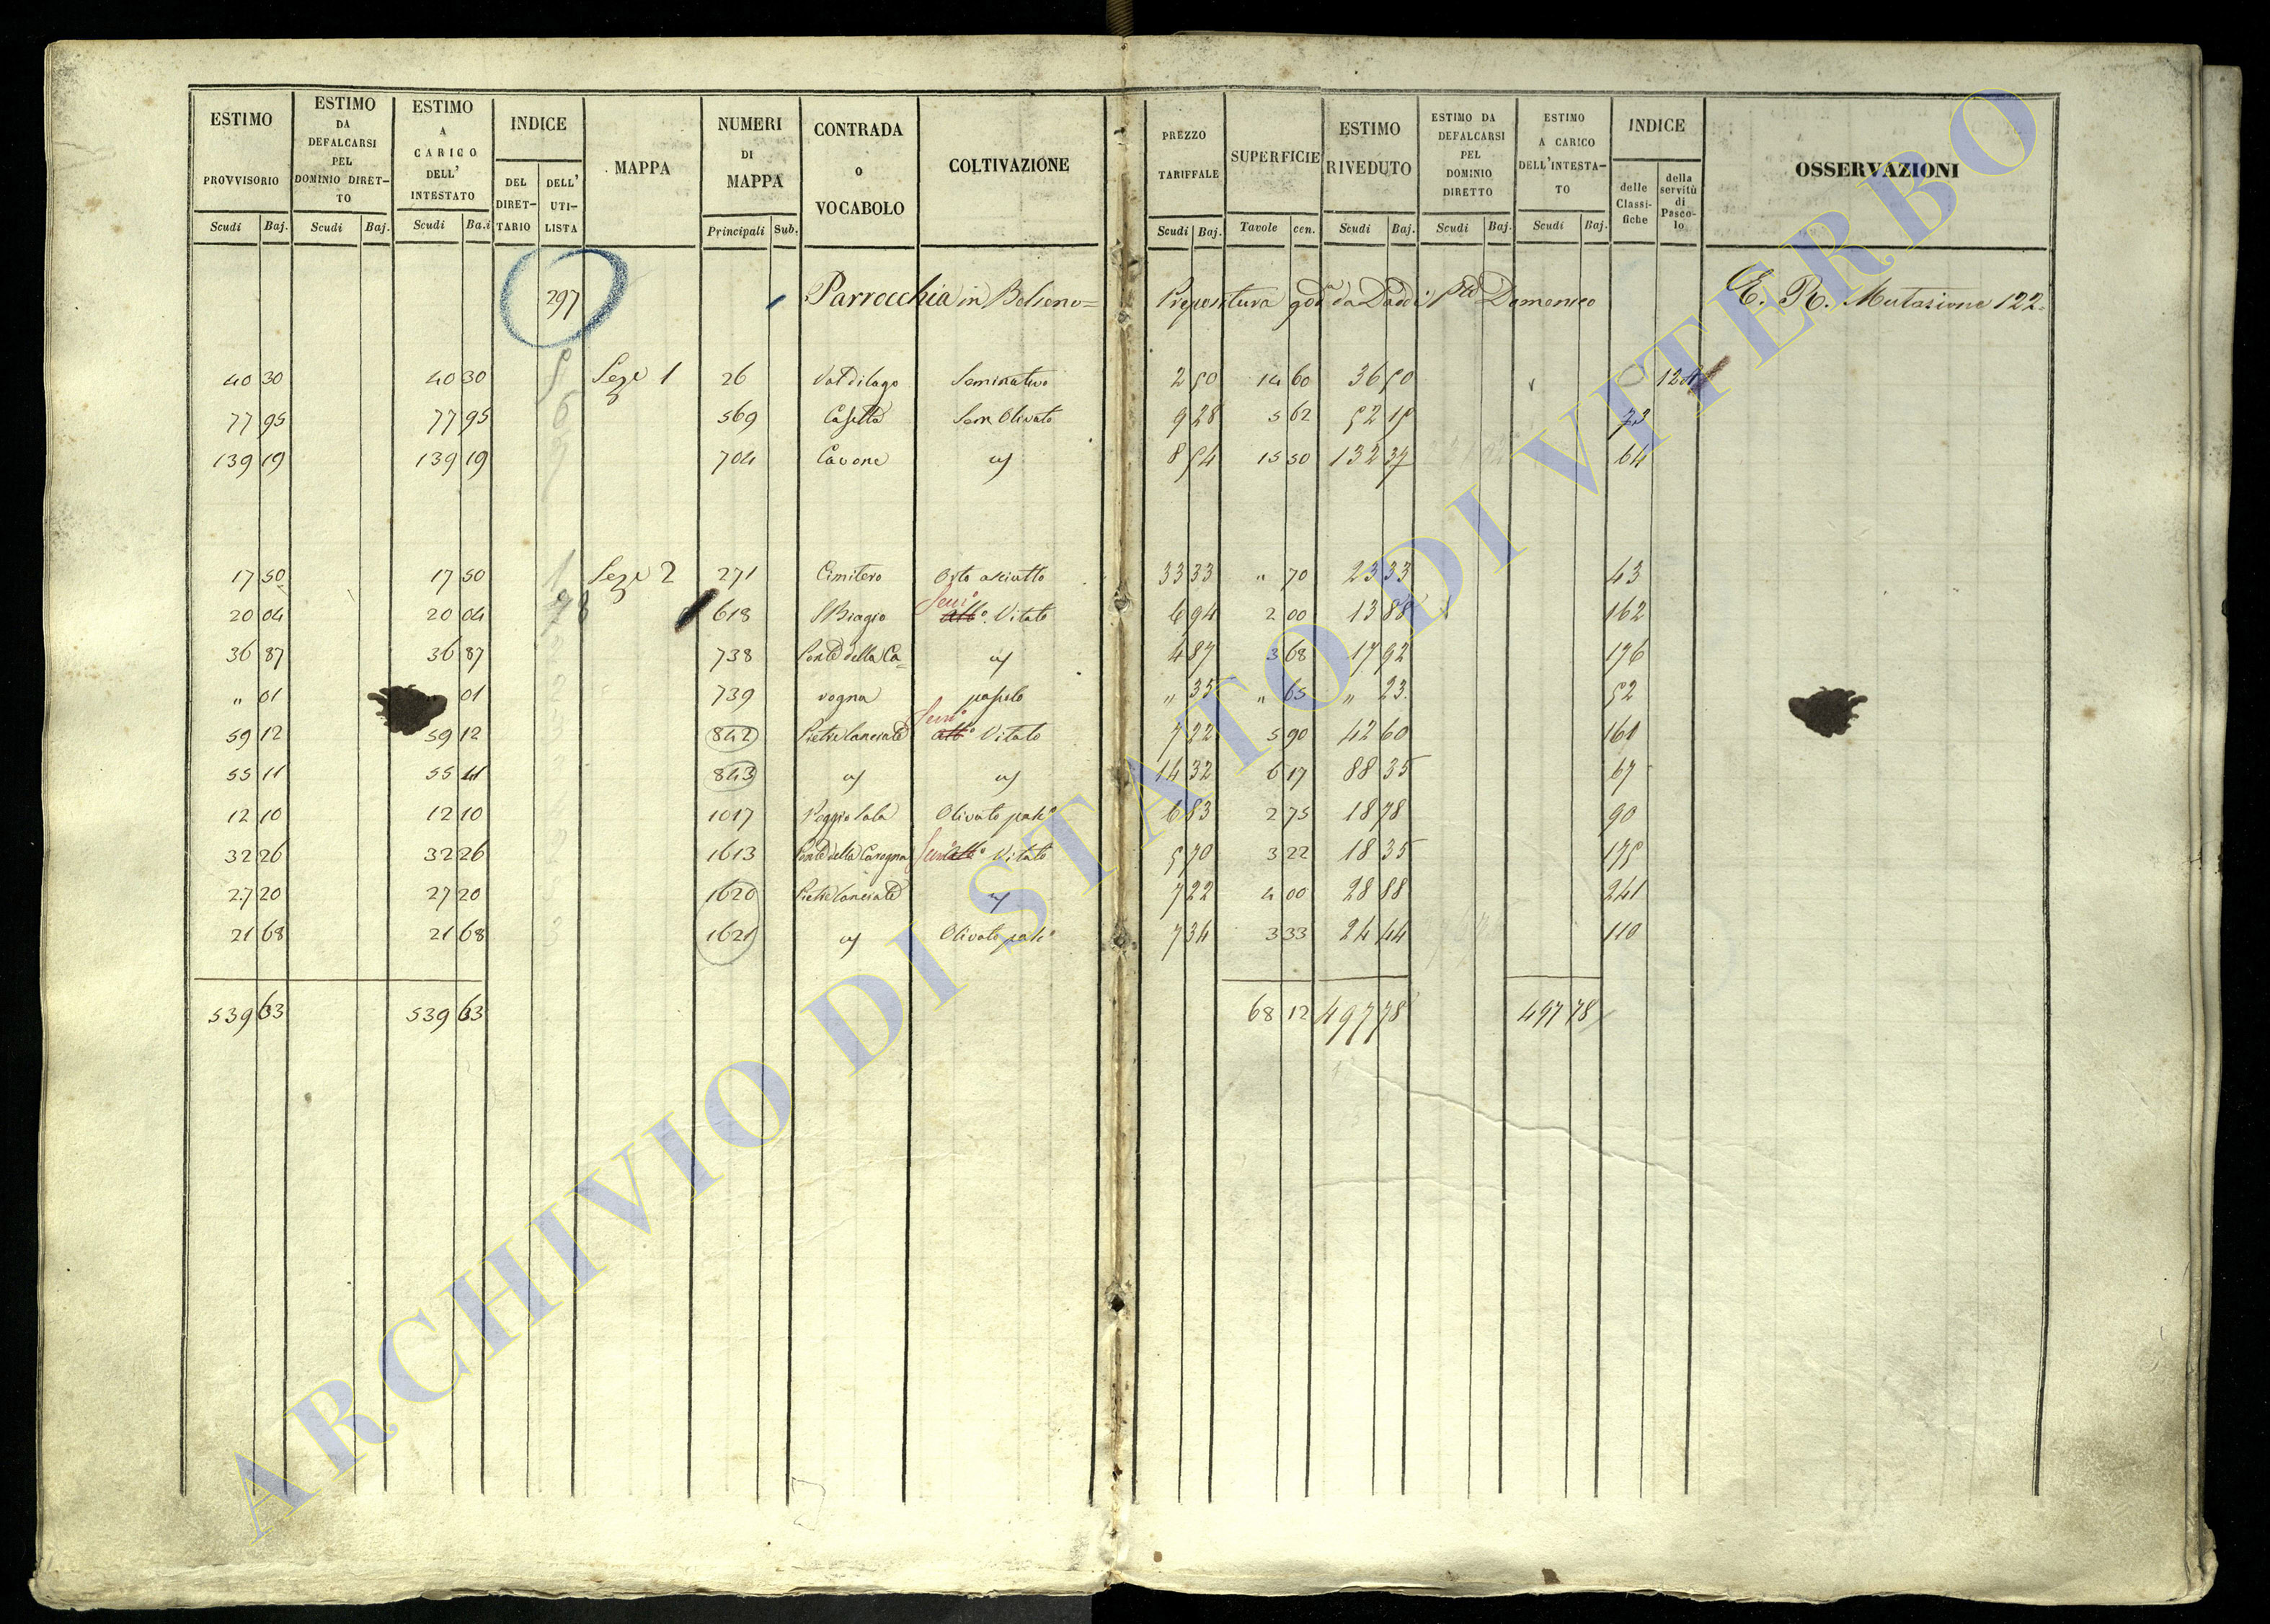 ESTIMO PROVVISORIO Scudi Baj.
ESTIMO DA DEFALCARSI PEL DOMINIO DIRET-TO Scudi Baj.
ESTIMO A CARICO DELL' INTESTATO Scudi Ba.i
INDICE DEL DIRET-TARIO DELL' UTI-LISTA
MAPPA
NUMERI DI MAPPA Principali Sub.
CONTRADA o VOCABOLO
COLTIVAZIONE
PREZZO TARIFFALE Scudi Baj.
SUPERFICIE Tavole cen.
ESTIMO RIVEDUTO Scudi Baj.
ESTIMO DA DEFALCARSI PEL DOMINIO DIRETTO Scudi Baj.
ESTIMO A CARICO DELL'INTESTA-TO Scudi Baj.
INDICE delle Classi-fiche della servitù di Pasco-lo
OSSERVAZIONI
297 Parrocchia in Bolseno= Prepositura god da Daddi Domenico E. R. Mutazione 122.
40 30 40 30 Seze 1 26 Val di lago Seminativo 2 50 14 60 36 50
77 95 77 95 569 Casetta Sem Olivato 9 28 5 62 52 15 73
139 19 139 19 704 Cavone 8 54 15 50 132 37 64
17 50 17 50 Seze 2 271 Cimitero Orto asciutto 33 33 " 70 23 33 43
20 04 20 04 618 S Biagio Semo Vitato 6 94 2 00 13 88 162
36 87 36 87 738 Ponte della Ca= 4 87 3 68 17 92 176
" 01 01 739 rogna pascolo " 35 " 65 " 23 52
59 12 59 12 842 Pietre lanciate Semo Vitato 7 22 5 90 42 60 161
55 11 55 11 843 14 32 6 17 88 35 67
12 10 12 10 1017 Poggio lala Olivato pasc 6 83 2 75 18 78 90
32 26 32 26 1613 Ponte della Carogna Vitato 5 70 3 22 18 35 175
27 20 27 20 1620 Pietre lanciate 7 22 4 00 28 88 241
21 68 21 68 1621 Olivato pasc 7 34 3 33 24 44 110
539 63 539 63 68 12 497 78 497 78
ARCHIVIO DI STATO DI VITERBO